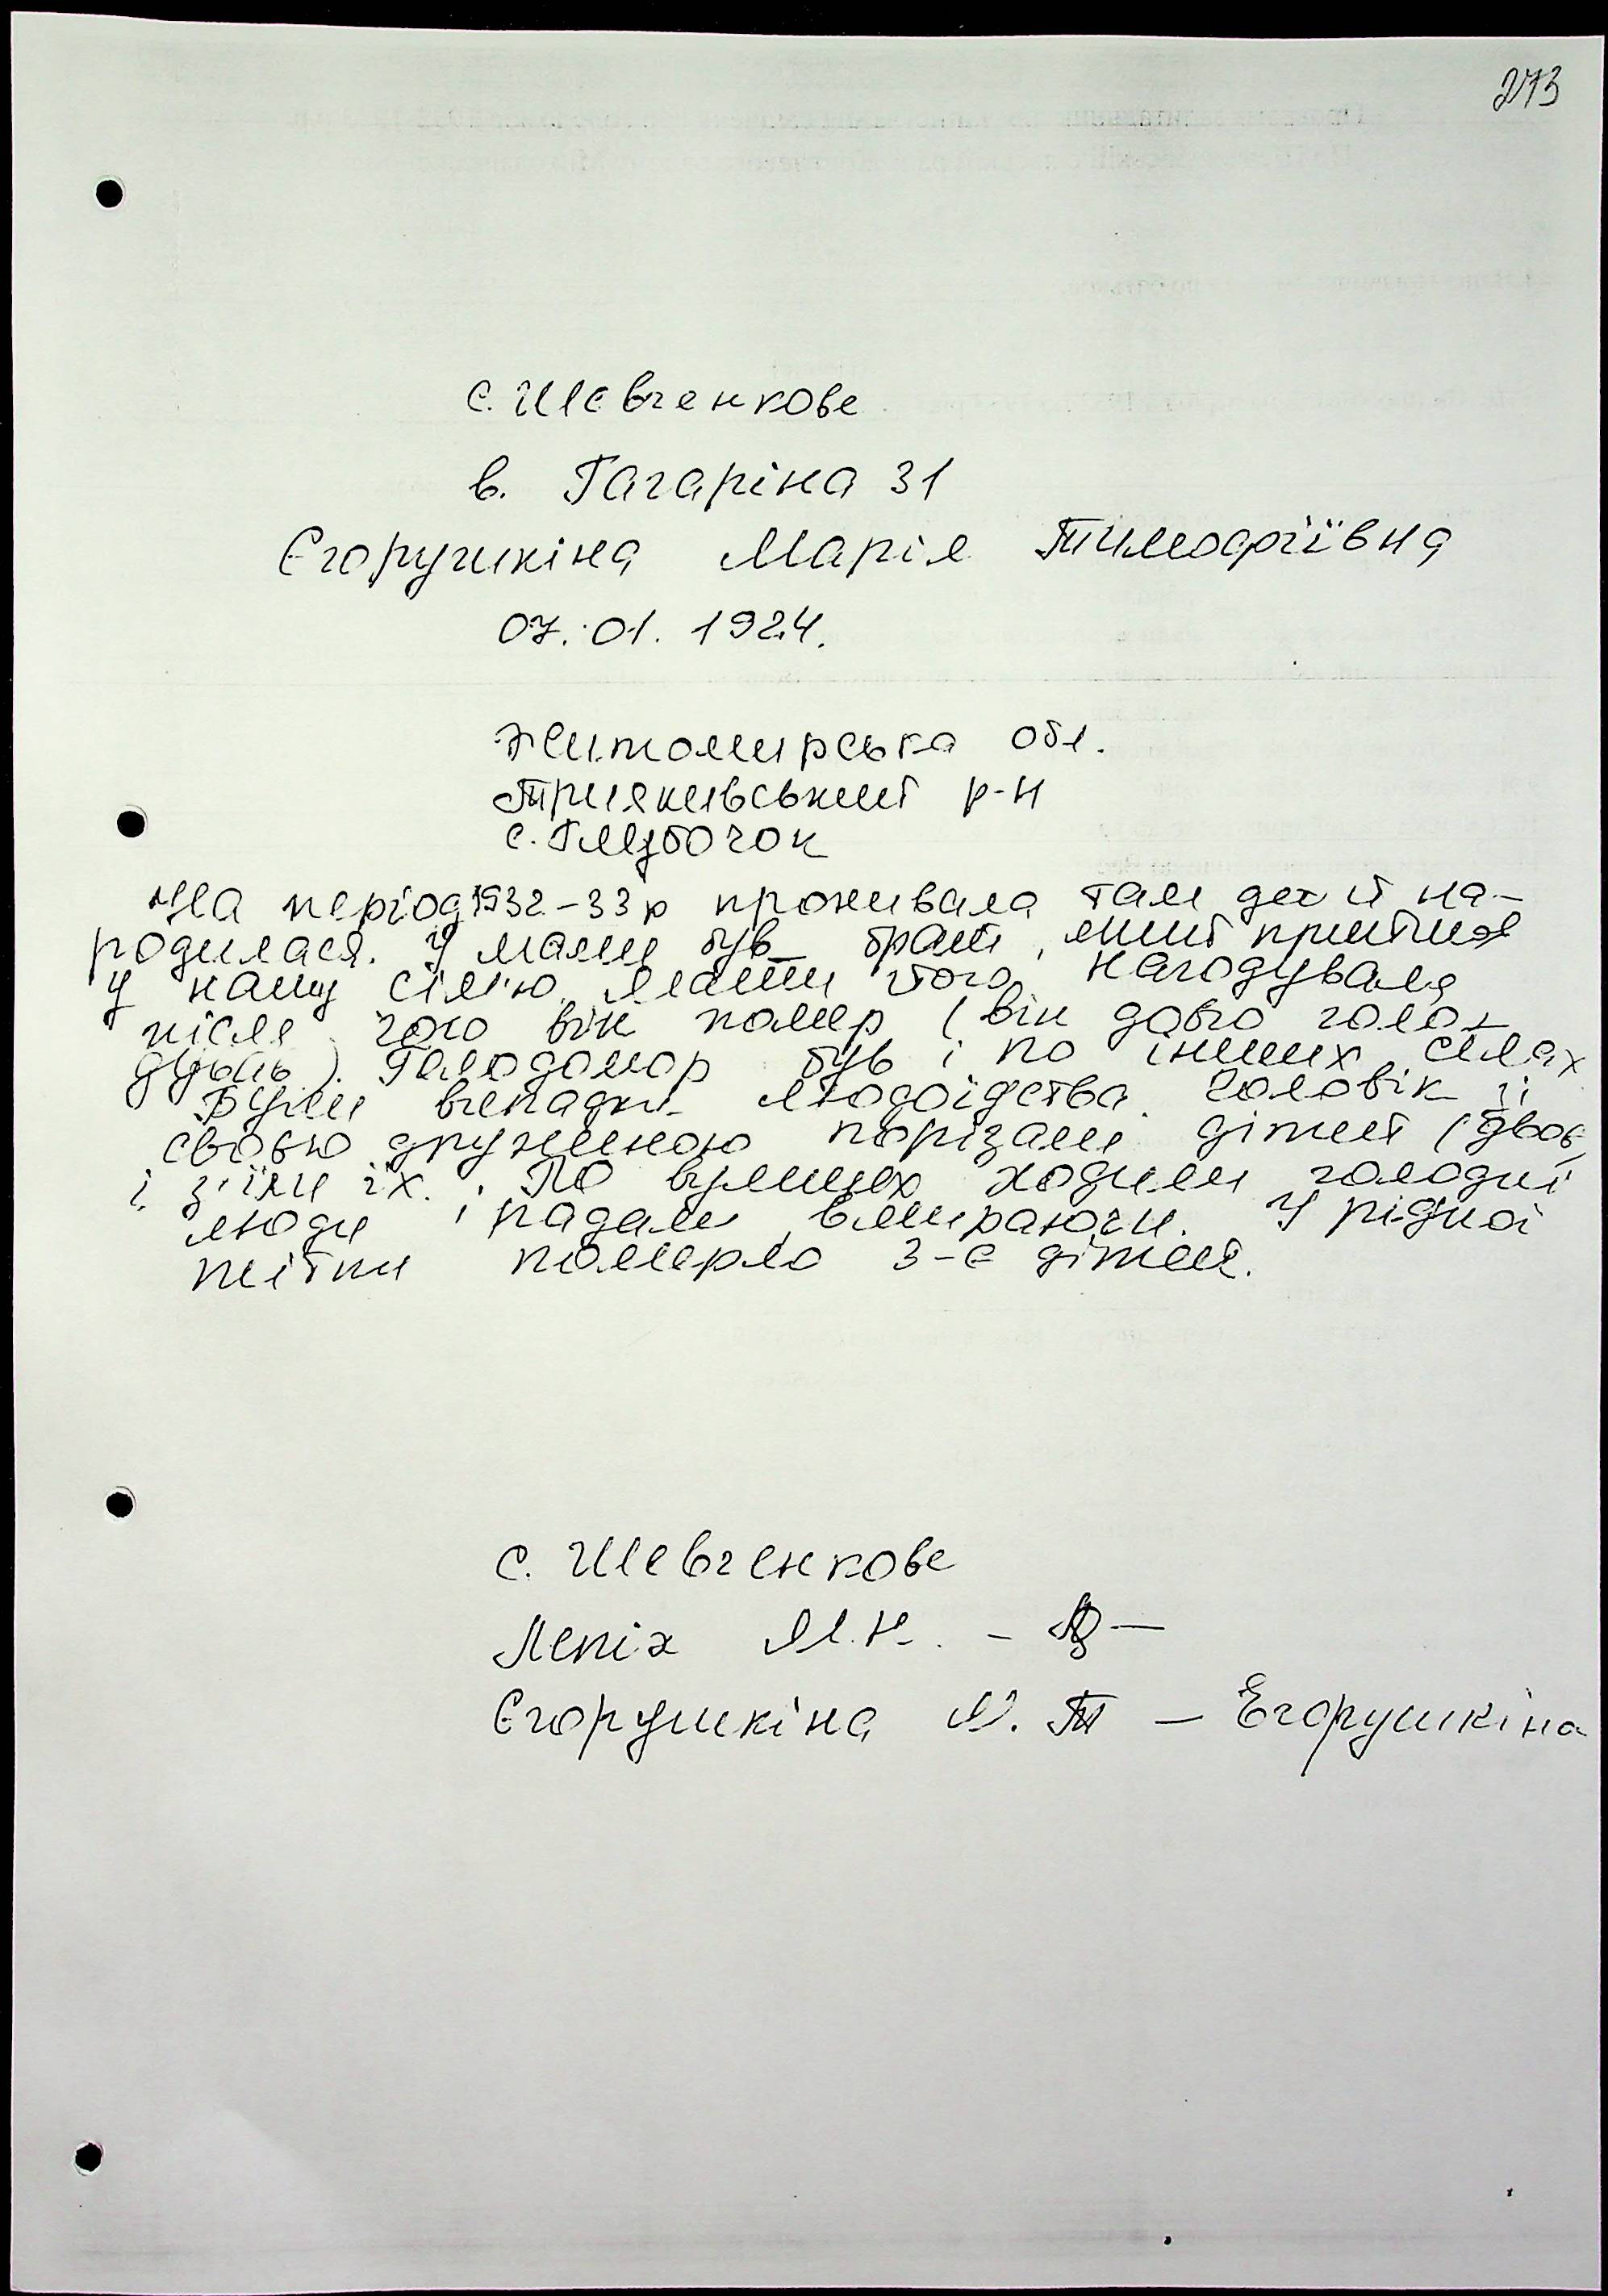 273
с. Шевченкове
в. Гагаріна 31
Єгорушкіна Марія Тимофіївна
07.01.1924.
Житомирська обл.
Трияківський р-н
с. Глибочок
На період 1932-33 р проживала там де й на-
родилася. У мами був брат, який прийшов
у нашу сім'ю. Мати його нагодувала
після чого він помер (він довго голо-
дував). Голодомор був і по інших селах
Були випадки людоїдства. Чоловік зі
своєю дружиною порізали дітей (двоє
і з'їли їх. По вулицях ходили голодні
люди і падали, вмираючи. У рідної
тітки померло 3-є дітей.
с. Шевченкове
Лепіх М.Н. -
Єгорушкіна М. Т - Егорушкіна